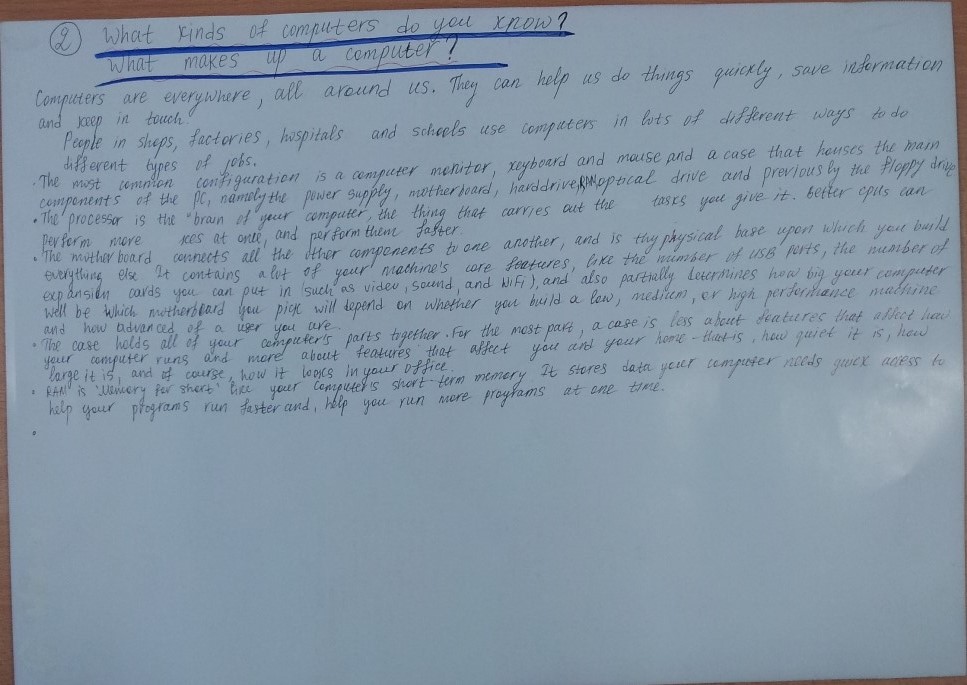 2 What kinds of computers do you know?
What makes up a computer?
Computers are everywhere, all around us. They can help us do things quickly, save information
and keep in touch.
People in shops, factories, hospitals and schools use computers in lots of different ways to do
different types of jobs.
. The most common configuration is a computer monitor, keyboard and mouse and a case that houses the main
components of the PC, namely the power supply, motherboard, harddrive, RAM optical drive and previous by the floppy drive
• The processor is the "brain of your computer, the thing that carries out the tasks you give it. Better cpus can
perform more at once, and perform them faster
• The mother board connects all the other components to one another, and is thy physical base upon which you build
everything else It contains a lot of your machine's core features, like the number of USB ports, the number of
expansion cards you can put in (such as video, sound, and WiFi), and also partially determines how big your computer
well be which motherboard you pick will depend on whether you build a low, medium, or high performance machine
and how advanced of a user you are.
• The case holds all of your computer's parts together. For the most part, a case is less about features that affect how
your computer runs and more about features that affect you and your home - that is, how quiet it is, how
large it is, and of course, how it looks in your office.
• RAM is "Memory for short" like your computer's short-term memory It stores data your computer needs quick acess to
help your programs run faster and, help you run more programs at one time.
•